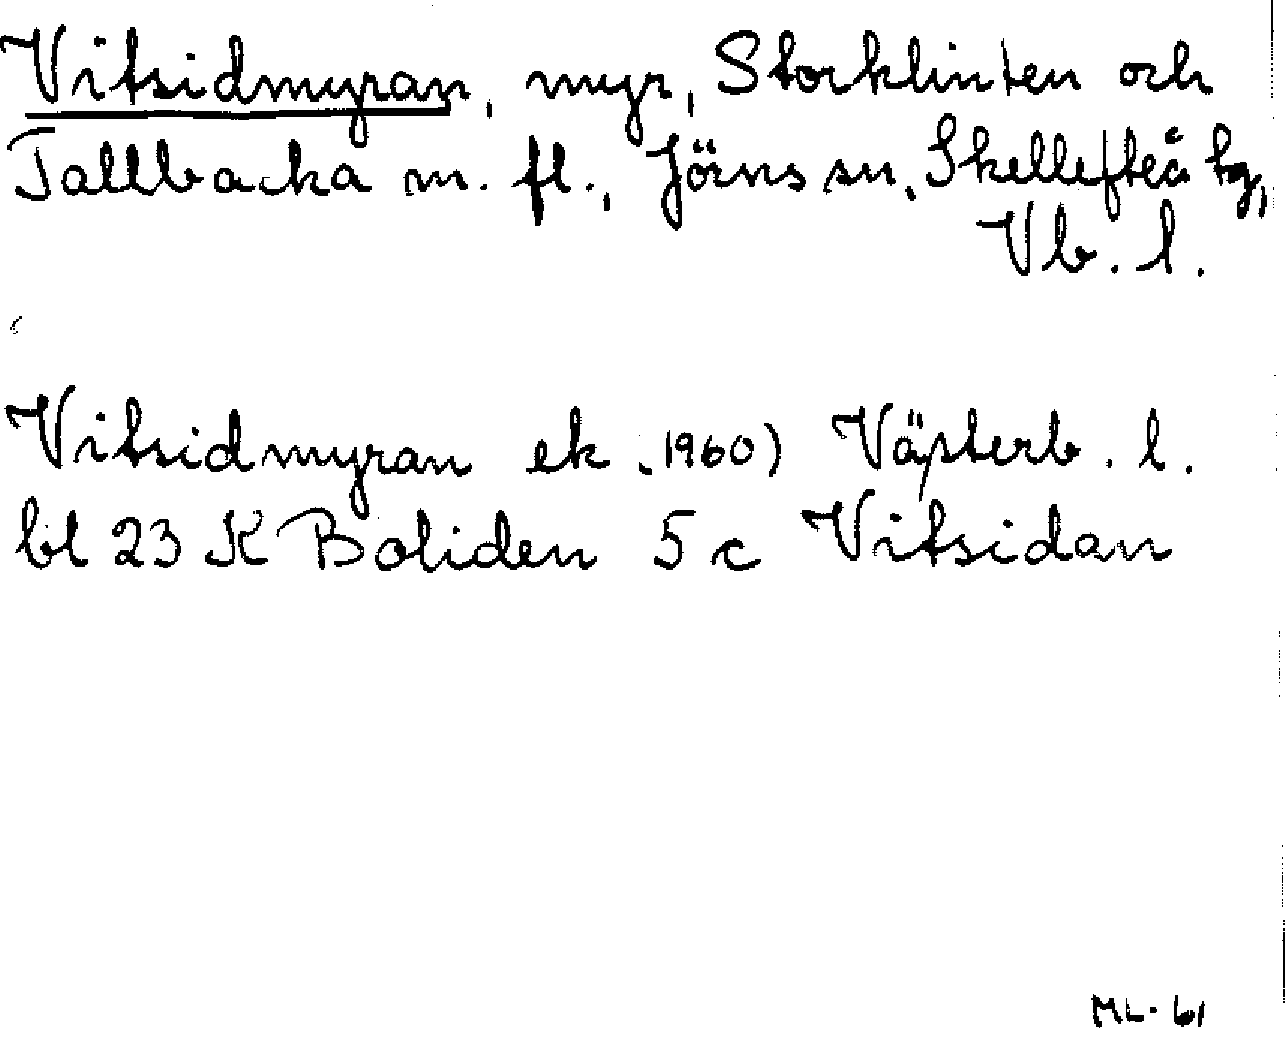 Vitsidmyran, myr, Storklinten och
Tallbacka m. fl., Jörns sn, Skellefteå tg,
Vb. l.
Vitsidmyran ek (1960) Västerb. l.
bl 23 K Boliden 5 c Vitsidan
ML. 61